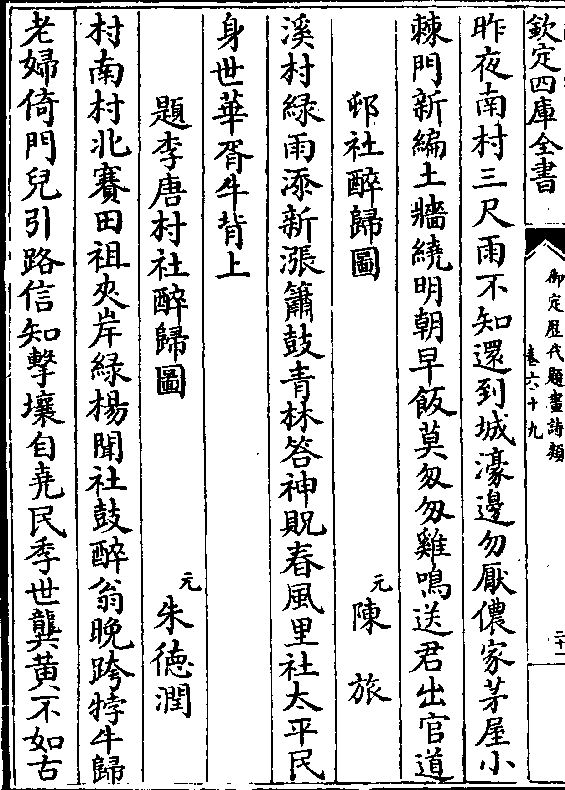 欽定四庫全書
御定歷代題畫詩類
卷六十九
二十一
昨夜南村三尺雨不知還到城濠邊勿厭儂家茅屋小
棘門新編土牆繞明朝早飯莫匆匆雞鳴送君出官道
邨社醉歸圖　元　陳旅
溪村綠雨添新漲簫鼓青林答神貺春風里社太平民
身世華胥牛背上
題李唐村社醉歸圖　元　朱德潤
村南村北賽田祖夾岸綠楊聞社鼓醉翁晚跨牸牛歸
老婦倚門兒引路信知擊壤自堯民季世龔黃不如古